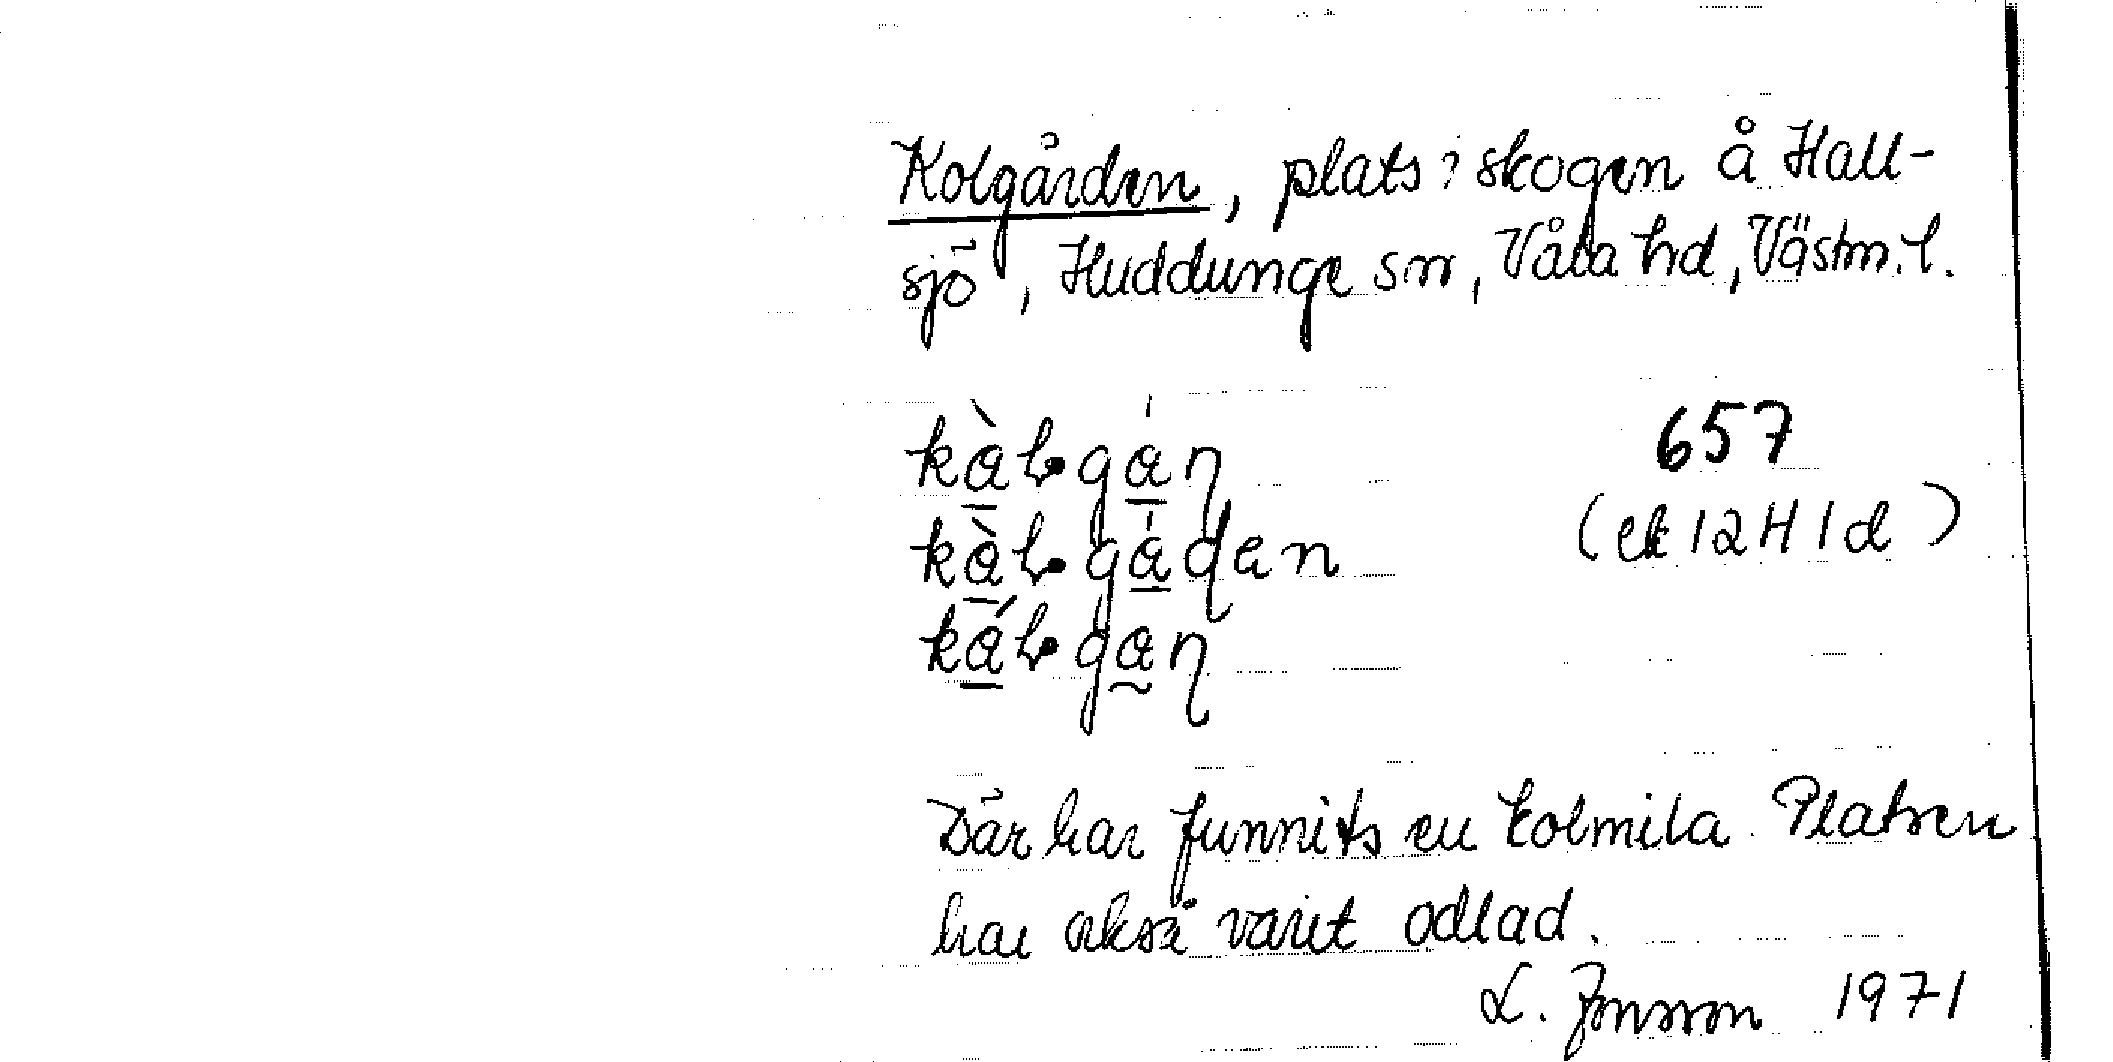 Kolgården, plats i skogen å Hall-
sjö, Huddunge sn, Våla hd, Västm. l.
kàlgán
657
kàlgáden
(ek 12H 1d)
kálgan
Där har funnits en kolmila. Platsen
har också varit odlad.
L. Jonsson 1971